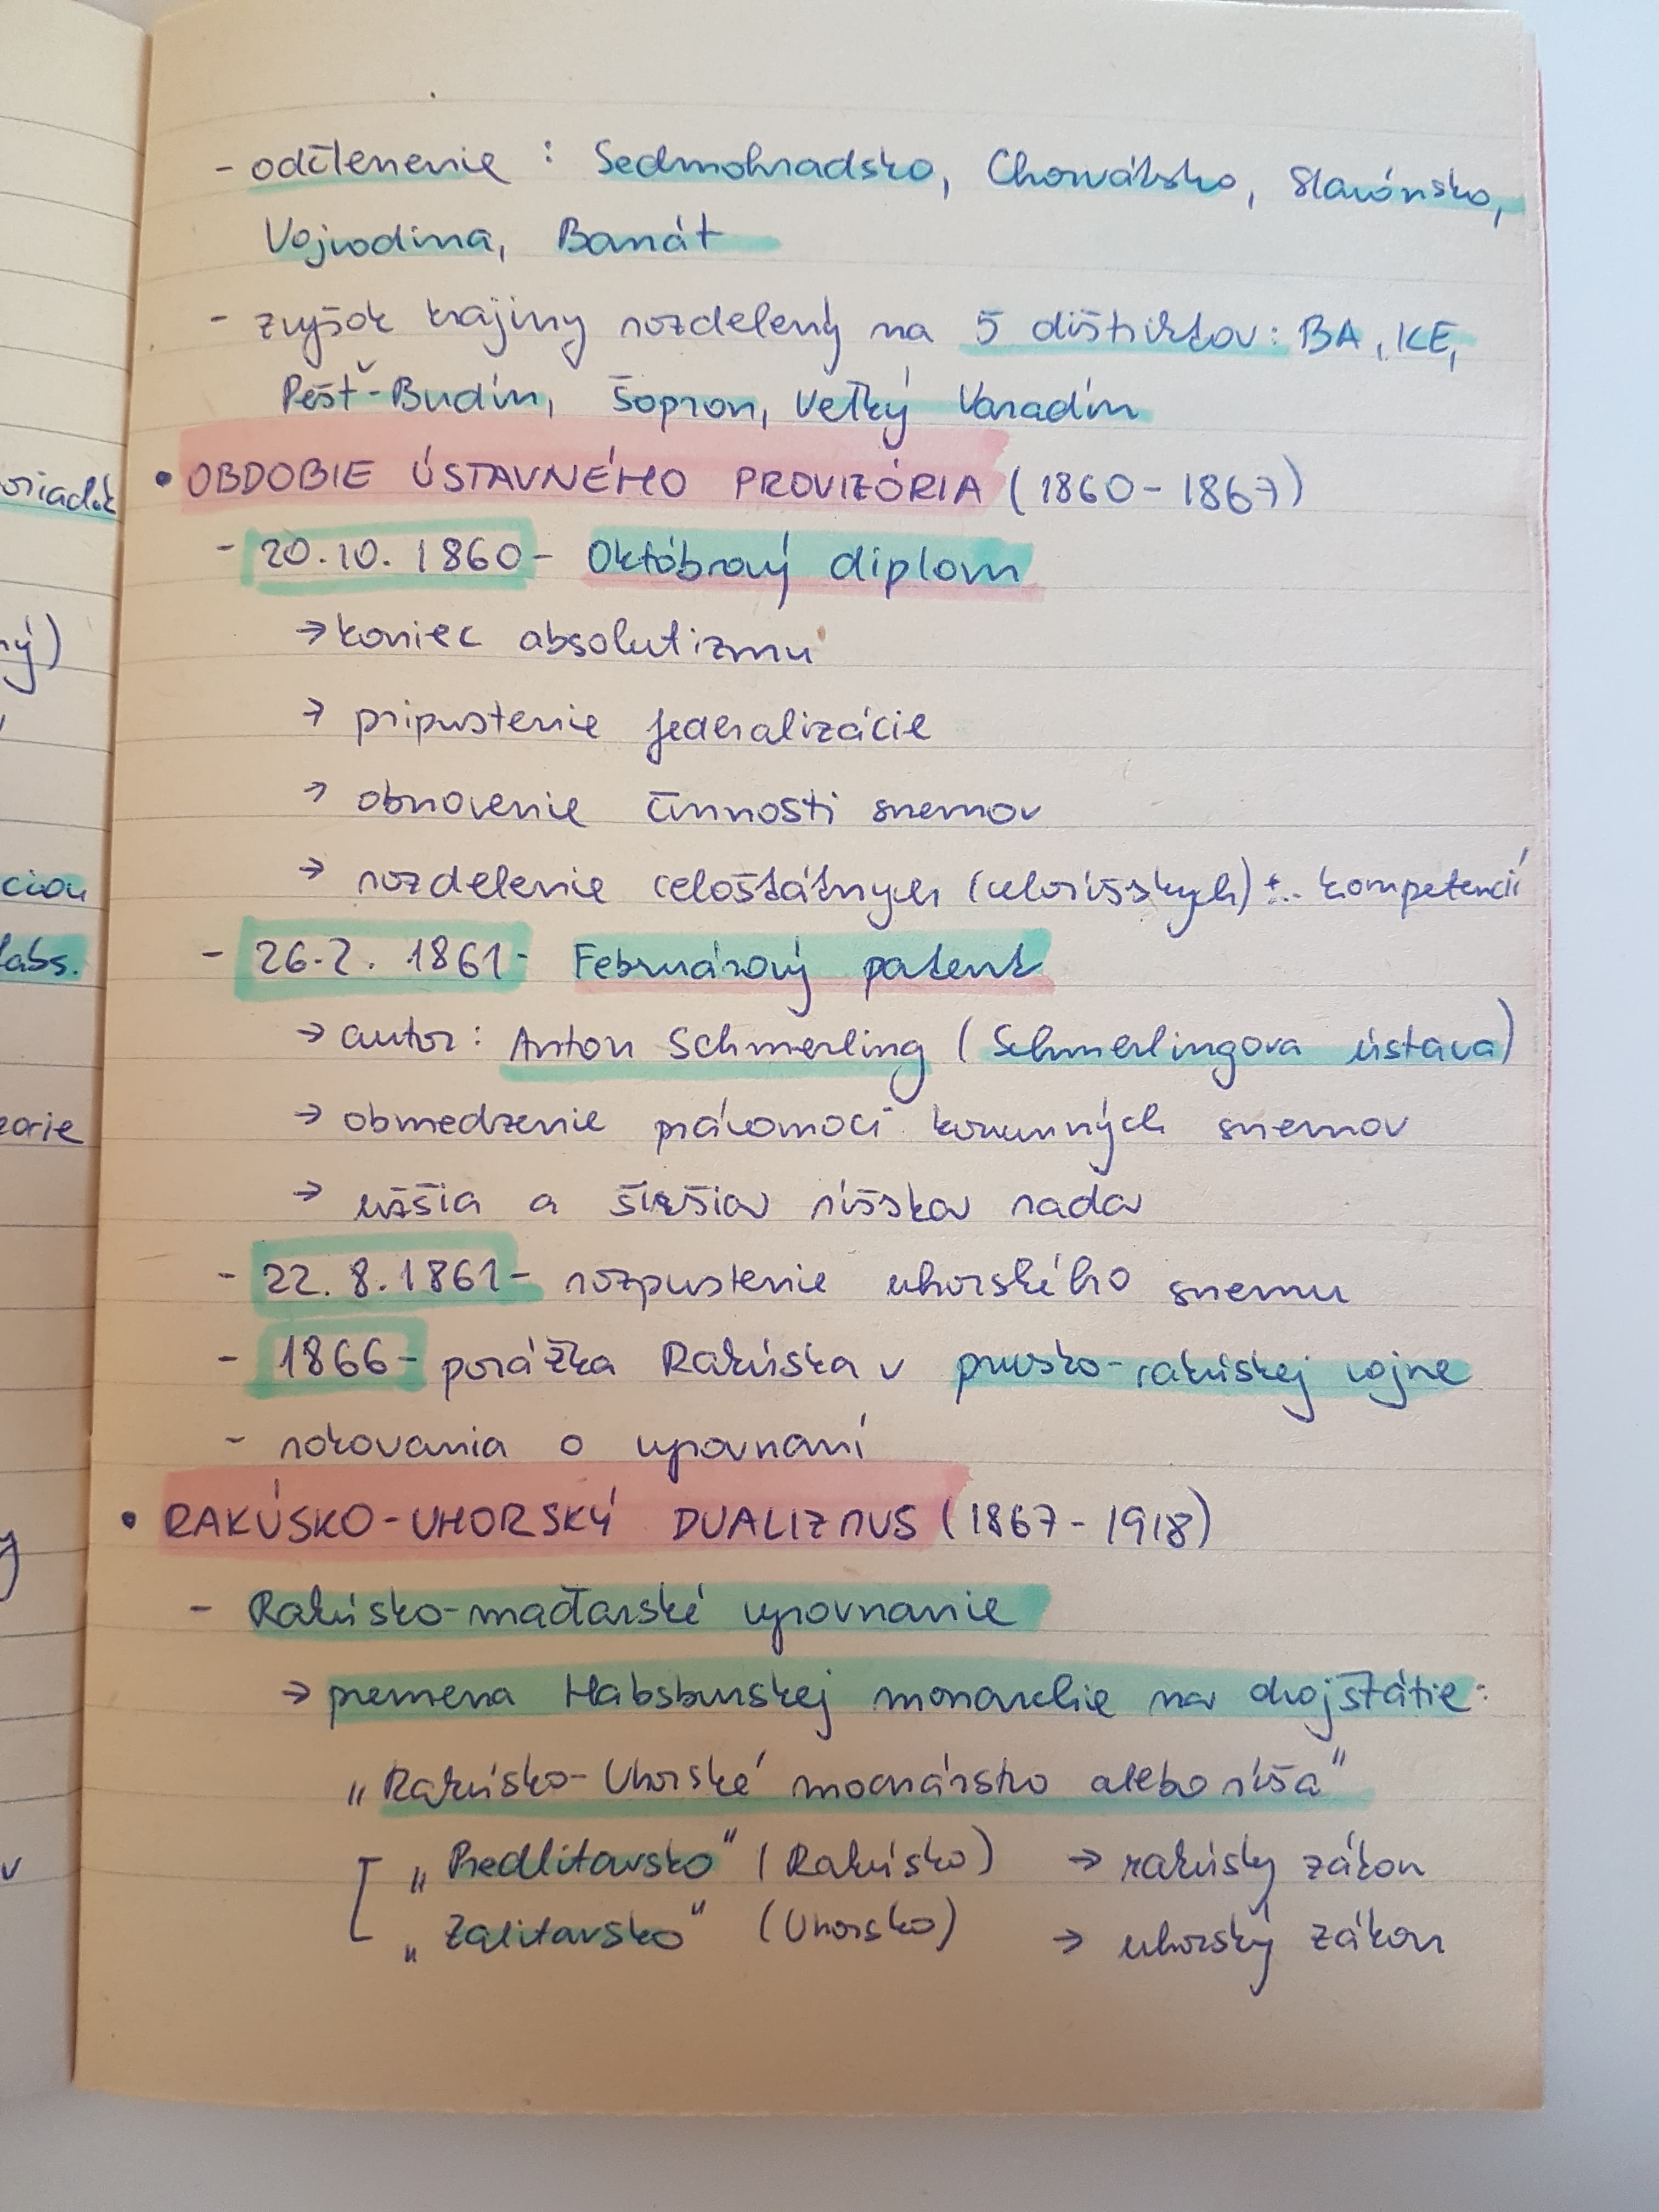 - odčlenenie : Sedmohradsko, Chorvátsko, Slavónsko,
Vojvodina, Banát
- zvyšok krajiny rozdelený na 5 dištriktov: BA, KE,
Pešť-Budín, Šopron, Veľký Varadín
• OBDOBIE ÚSTAVNÉHO PROVIZÓRIA (1860-1867)
- 20.10. 1860 - Októbrový diplom
→ koniec absolutizmu
→ pripustenie federalizácie
→ obnovenie činnosti snemov
oriadok
→ rozdelenie celoštátnych (celoríšskych) kompetencií
ný)
- 26.2. 1861 - Februárový patent
→ autor: Anton Schmerling (Schmerlingova ústava)
→ obmedzenie právomocí korunných snemov
→ užšia a širšia ríšska rada
- 22. 8. 1861 - rozpustenie uhorského snemu
- 1866 - porážka Rakúska v prusko-rakúskej vojne
- rokovania o vyrovnaní
• RAKÚSKO-UHORSKÝ DUALIZMUS (1867-1918)
- Rakúsko-maďarské vyrovnanie
→ premena Habsburskej monarchie na dvojštátie:
„Rakúsko-Uhorské mocnárstvo alebo ríša"
„Predlitavsko" (Rakúsko) → rakúsky zákon
„Zalitavsko" (Uhorsko) → uhorský zákon
ciou
abs.
eorie
y
v